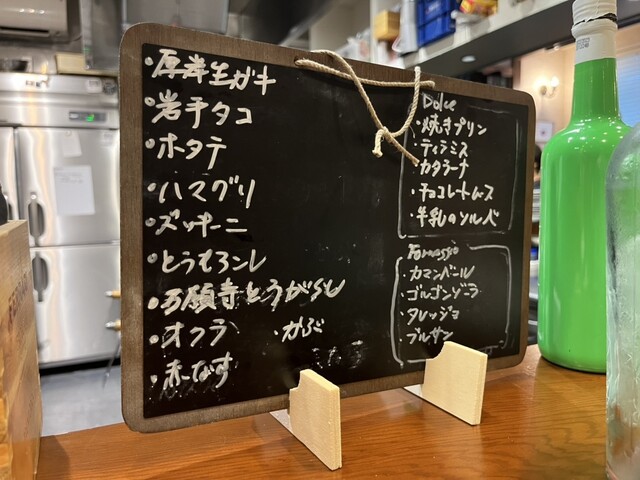 ・厚岸生ガキ
・岩手タコ
・ホタテ
・ハマグリ
・ズッキーニ
・とうもろこし
・万願寺とうがらし
・オクラ ・かぶ
・赤なす
Dolce
・焼きプリン
・ティラミス
・カタラーナ
・チョコレートムース
・牛乳のソルベ
Formaggio
・カマンベール
・ゴルゴンゾーラ
・タレッジョ
・ブルサン